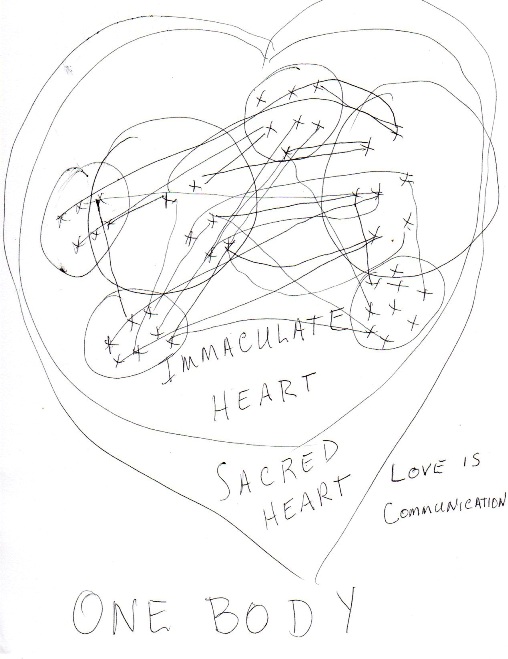 IMMACULATE
HEART
SACRED
HEART
LOVE IS
COMMUNICATION
ONE BODY